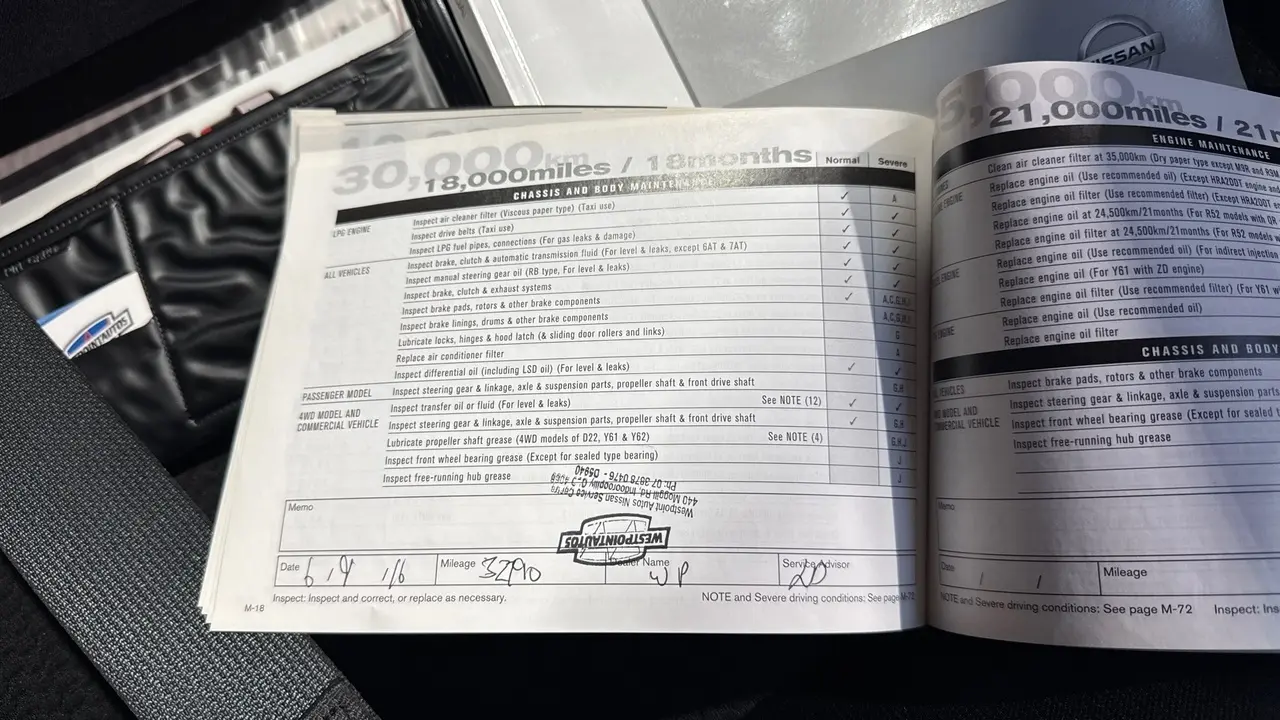 NISSAN
30,000km
18,000miles / 18months
Normal
Severe
CHASSIS AND BODY MAINTENANCE
LPG ENGINE
Inspect air cleaner filter (Viscous paper type) (Taxi use)
✓
A
Inspect drive belts (Taxi use)
✓
✓
Inspect LPG fuel pipes, connections (For gas leaks & damage)
✓
✓
ALL VEHICLES
Inspect brake, clutch & automatic transmission fluid (For level & leaks, except 6AT & 7AT)
✓
✓
Inspect manual steering gear oil (RB type, For level & leaks)
✓
✓
Inspect brake, clutch & exhaust systems
✓
✓
Inspect brake pads, rotors & other brake components
✓
A,C,G,H,
Inspect brake linings, drums & other brake components
A,C,G,H,
Lubricate locks, hinges & hood latch (& sliding door rollers and links)
G
Replace air conditioner filter
A
Inspect differential oil (including LSD oil) (For level & leaks)
✓
✓
PASSENGER MODEL
Inspect steering gear & linkage, axle & suspension parts, propeller shaft & front drive shaft
G,H
4WD MODEL AND
COMMERCIAL VEHICLE
Inspect transfer oil or fluid (For level & leaks)
See NOTE (12)
✓
✓
Inspect steering gear & linkage, axle & suspension parts, propeller shaft & front drive shaft
✓
G,H
Lubricate propeller shaft grease (4WD models of D22, Y61 & Y62)
See NOTE (4)
G,H,J
Inspect front wheel bearing grease (Except for sealed type bearing)
J
Inspect free-running hub grease
J
Memo
WESTPOINTAUTOS
Westpoint Autos Nissan Service Centre
440 Moggill Rd, Indooroopilly
Ph: 07 3878 0476 -
Date 6 / 9 / 16
Mileage 3290
Dealer Name WP
Service Advisor
Inspect: Inspect and correct, or replace as necessary.
NOTE and Severe driving conditions: See page M-72
M-18
5,000km
21,000miles / 21m
ENGINE MAINTENANCE
Clean air cleaner filter at 35,000km (Dry paper type except M9R and R9M
Replace engine oil (Use recommended oil) (Except HRA2DDT engine and
Replace engine oil filter (Use recommended filter) (Except HRA2DDT e
Replace engine oil at 24,500km/21months (For R52 models with QR
Replace engine oil filter at 24,500km/21months (For R52 models w
Replace engine oil (Use recommended oil) (For indirect injection
Replace engine oil (For Y61 with ZD engine)
Replace engine oil filter (Use recommended filter) (For Y61 w
Replace engine oil (Use recommended oil)
Replace engine oil filter
ENGINE
CHASSIS AND BODY
VEHICLES
Inspect brake pads, rotors & other brake components
Inspect steering gear & linkage, axle & suspension parts
Inspect front wheel bearing grease (Except for sealed t
Inspect free-running hub grease
Memo
Date / /
Mileage
NOTE and Severe driving conditions: See page M-72
Inspect: Ins